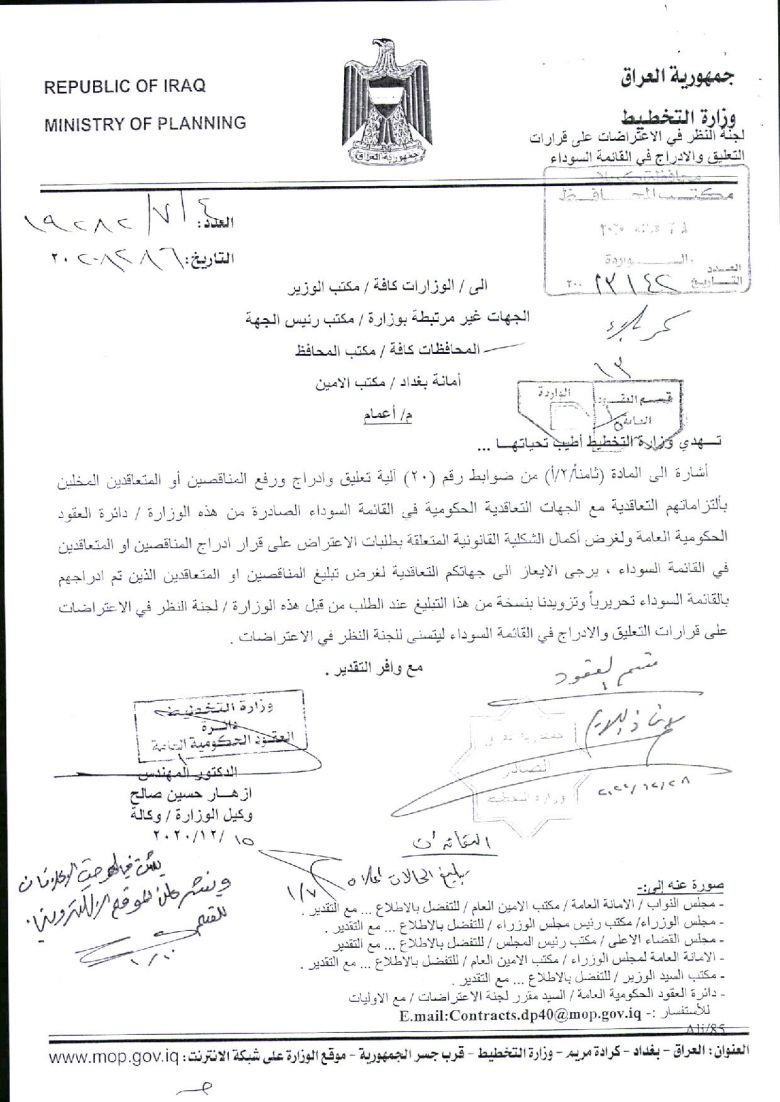 REPUBLIC OF IRAQ
MINISTRY OF PLANNING
جمهورية العراق
جمهورية العراق
وزارة التخطيط
لجنة النظر في الاعتراضات على قرارات
التعليق والادراج في القائمة السوداء
مكتب المحافظ
الواردة
العدد
التاريخ
٢٣١٤٢
العدد: ٤/٧/١٩٢٨٢
التاريخ:
كربلاء
الى / الوزارات كافة / مكتب الوزير
الجهات غير مرتبطة بوزارة / مكتب رئيس الجهة
المحافظات كافة / مكتب المحافظ
أمانة بغداد / مكتب الامين
م/ أعمام
قسم العقود
الواردة
تهدي وزارة التخطيط أطيب تحياتها ...
أشارة الى المادة (ثامناً/٢/أ) من ضوابط رقم (٢٠) آلية تعليق وادراج ورفع المناقصين أو المتعاقدين المخلين
بألتزاماتهم التعاقدية مع الجهات التعاقدية الحكومية في القائمة السوداء الصادرة من هذه الوزارة / دائرة العقود
الحكومية العامة ولغرض أكمال الشكلية القانونية المتعلقة بطلبات الاعتراض على قرار ادراج المناقصين او المتعاقدين
في القائمة السوداء ، يرجى الايعاز الى جهاتكم التعاقدية لغرض تبليغ المناقصين او المتعاقدين الذين تم ادراجهم
بالقائمة السوداء تحريرياً وتزويدنا بنسخة من هذا التبليغ عند الطلب من قبل هذه الوزارة / لجنة النظر في الاعتراضات
على قرارات التعليق والادراج في القائمة السوداء ليتسنى للجنة النظر في الاعتراضات .
مع وافر التقدير .
قسم العقود
وزارة التخطيط
دائرة
العقود الحكومية العامة
جمهورية العراق
الصادر
وزارة التخطيط
الدكتور المهندس
ازهار حسين صالح
وكيل الوزارة / وكالة
١٥ /٢٠٢٠/١٢
صورة عنه إلى:-
- مجلس النواب / الامانة العامة / مكتب الامين العام / للتفضل بالاطلاع ... مع التقدير .
- مجلس الوزراء/ مكتب رئيس مجلس الوزراء / للتفضل بالاطلاع ... مع التقدير .
- مجلس القضاء الاعلى / مكتب رئيس المجلس / للتفضل بالاطلاع ... مع التقدير
- الامانة العامة لمجلس الوزراء / مكتب الامين العام / للتفضل بالاطلاع ... مع التقدير .
- مكتب السيد الوزير / للتفضل بالاطلاع ... مع التقدير .
- دائرة العقود الحكومية العامة / السيد مقرر لجنة الاعتراضات / مع الاوليات
للأستفسار :- E.mail:Contracts.dp40@mop.gov.iq
Ali/85
العنوان: العراق - بغداد- كرادة مريم- وزارة التخطيط - قرب جسر الجمهورية - موقع الوزارة على شبكة الانترنت: www.mop.gov.iq